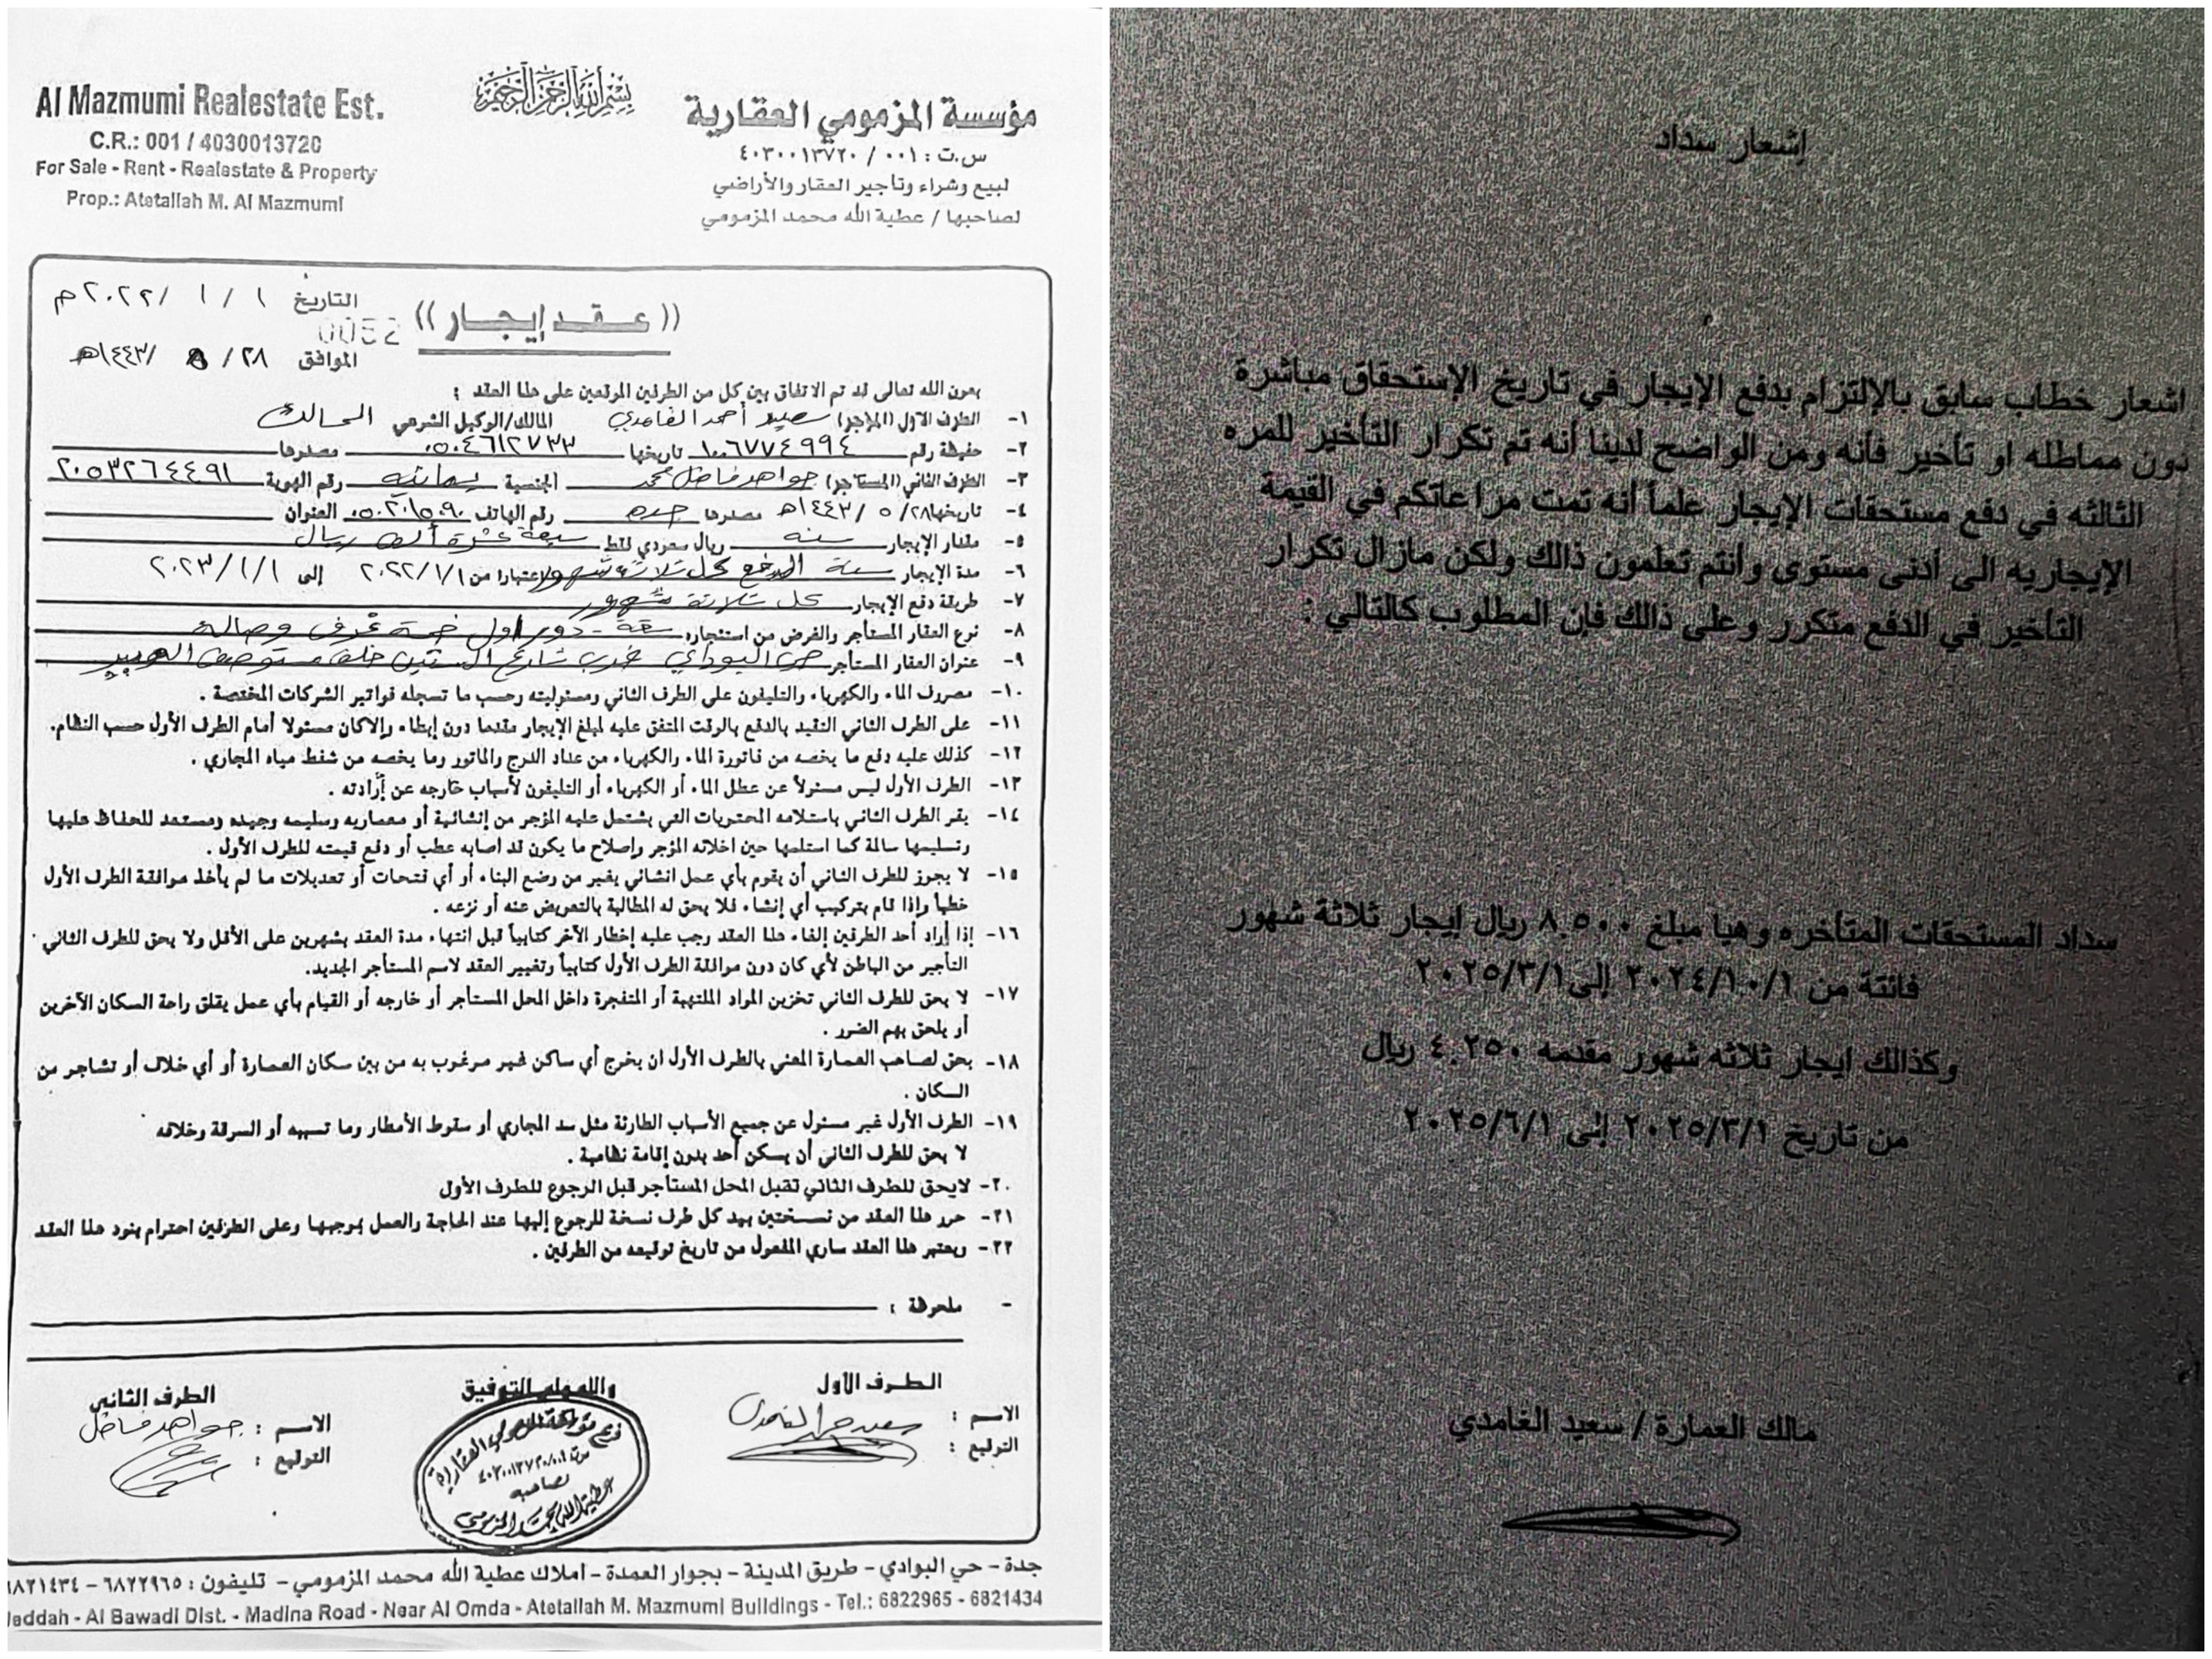 Al Mazmumi Realestate Est.
C.R.: 001 / 4030013720
For Sale - Rent - Realestate & Property
Prop.: Atetallah M. Al Mazmumi
بسم الله الرحمن الرحيم
مؤسسة المزمومي العقارية
س.ت : ٠٠١ / ٤٠٣٠٠١٣٧٢٠
لبيع وشراء وتأجير العقار والأراضي
لصاحبها / عطية الله محمد المزمومي
(( عقد إيجار ))
التاريخ ١ / ١ / ٢٠٢٢م
0052
الموافق ٢٨ / / ١٤٤٣هـ
بعون الله تعالى قد تم الاتفاق بين كل من الطرفين الموقعين على هذا العقد :
١- الطرف الاول (المؤجر) سعيد أحمد الغامدي المالك/الوكيل الشرعي المالك
٢- حفيظة رقم ١٠٠٦٧٧٤٩٩٤ تاريخها ٠٥٠٤٦١٢٧٣٣ مصدرها
٣- الطرف الثاني (المستأجر) جواهر فاضل محمد الجنسية يمانيه رقم الهوية ٢٠٥٣٢٦٤٤٩١
٤- تاريخها ٢٨/ ٥ / ١٤٤٣هـ مصدرها جده رقم الهاتف العنوان
٥- مقدار الإيجار سنه ريال سعودي فقط سبعة عشرة ألف ريال
٦- مدة الإيجار سنة الدفع كل ثلاثة شهور إعتبارا من ٢٠٢٢/١/١ إلى ٢٠٢٣/١/١
٧- طريقة دفع الإيجار كل ثلاثة شهور
٨- نوع العقار المستأجر والغرض من استئجاره شقة - دور اول خمسة غرف وصالة
٩- عنوان العقار المستأجر حي البوادي غرب شارع الستين خلف مستوصف
١٠- مصروف الماء والكهرباء والتليفون على الطرف الثاني ومسئوليته وحسب ما تسجله فواتير الشركات المختصة .
١١- على الطرف الثاني التقيد بالدفع بالوقت المتفق عليه لمبلغ الإيجار مقدما دون إبطاء وإلا كان مسئولا أمام الطرف الأول حسب النظام.
١٢- كذلك عليه دفع ما يخصه من فاتورة الماء والكهرباء من عداد الدرج والماتور وما يخصه من شفط مياه المجاري .
١٣- الطرف الأول ليس مسئولاً عن عطل الماء أو الكهرباء أو التليفون لأسباب خارجه عن إرادته .
١٤- يقر الطرف الثاني باستلامه المحتويات التي يشتمل عليه المؤجر من إنشائية أو معماريه وسليمه وجيده ومستعد للحفاظ عليها
وتسليمها سالمة كما استلمها حين اخلائه المؤجر وإصلاح ما يكون قد اصابه عطب أو دفع قيمته للطرف الأول .
١٥- لا يجوز للطرف الثاني أن يقوم بأي عمل انشائي يغير من وضع البناء أو أي فتحات أو تعديلات ما لم يأخذ موافقة الطرف الأول
خطياً وإذا قام بتركيب أي إنشاء فلا يحق له المطالبة بالتعويض عنه أو نزعه .
١٦- إذا أراد أحد الطرفين إلغاء هذا العقد رجب عليه إخطار الآخر كتابياً قبل انتهاء مدة العقد بشهرين على الأقل ولا يحق للطرف الثاني
التأجير من الباطن لأي كان دون موافقة الطرف الأول كتابياً وتغيير العقد لاسم المستأجر الجديد.
١٧- لا يحق للطرف الثاني تخزين المواد الملتهبة أو المتفجرة داخل المحل المستأجر أو خارجه أو القيام بأي عمل يقلق راحة السكان الآخرين
أو يلحق بهم الضرر .
١٨- يحق لصاحب العمارة المعني بالطرف الأول ان يخرج أي ساكن غير مرغوب به من بين سكان العمارة أو أي خلاف أو تشاجر من
السكان .
١٩- الطرف الأول غير مسئول عن جميع الأسباب الطارئة مثل سد المجاري أو سقوط الأمطار وما تسببه أو السرقة وخلافه
لا يحق للطرف الثاني أن يسكن أحد بدون إقامة نظامية .
٢٠- لايحق للطرف الثاني تقبل المحل المستأجر قبل الرجوع للطرف الأول
٢١- حرر هذا العقد من نسختين بيد كل طرف نسخة للرجوع إليها عند الحاجة والعمل بموجبها وعلى الطرفين احترام بنود هذا العقد
٢٢- ويعتبر هذا العقد ساري المفعول من تاريخ توقيعه من الطرفين .
- ملحوظة :
الطرف الأول
والله ولي التوفيق
الطرف الثاني
الاسم : سعيد الغامدي
الاسم : جواهر فاضل
التوقيع :
التوقيع :
العقارية
٤٠٣٠٠١٣٧٢٠/٠٠١
لصاحبه
عطية الله محمد المزمومي
جدة - حي البوادي - طريق المدينة - بجوار العمدة - املاك عطية الله محمد المزمومي - تليفون : ٦٨٢٢٩٦٥ - ٦٨٢١٤٣٤
Jeddah - Al Bawadi Dist. - Madina Road - Near Al Omda - Atetallah M. Mazmumi Buildings - Tel.: 6822965 - 6821434
إشعار سداد
اشعار خطاب سابق بالإلتزام بدفع الإيجار في تاريخ الإستحقاق مباشرة
دون مماطله او تأخير فأنه ومن الواضح لدينا أنه تم تكرار التأخير للمره
الثالثه في دفع مستحقات الإيجار علماً أنه تمت مراعاتكم في القيمة
الإيجاريه الى أدنى مستوى وأنتم تعلمون ذالك ولكن مازال تكرار
التأخير في الدفع متكرر وعلى ذالك فإن المطلوب كالتالي :
سداد المستحقات المتأخره وهيا مبلغ ٨,٥٠٠ ريال إيجار ثلاثة شهور
فائتة من ٢٠٢٤/١٠/١ إلى ٢٠٢٥/٣/١
وكذالك ايجار ثلاثه شهور مقدمه ٤,٢٥٠ ريال
من تاريخ ٢٠٢٥/٣/١ إلى ٢٠٢٥/٦/١
مالك العمارة / سعيد الغامدي